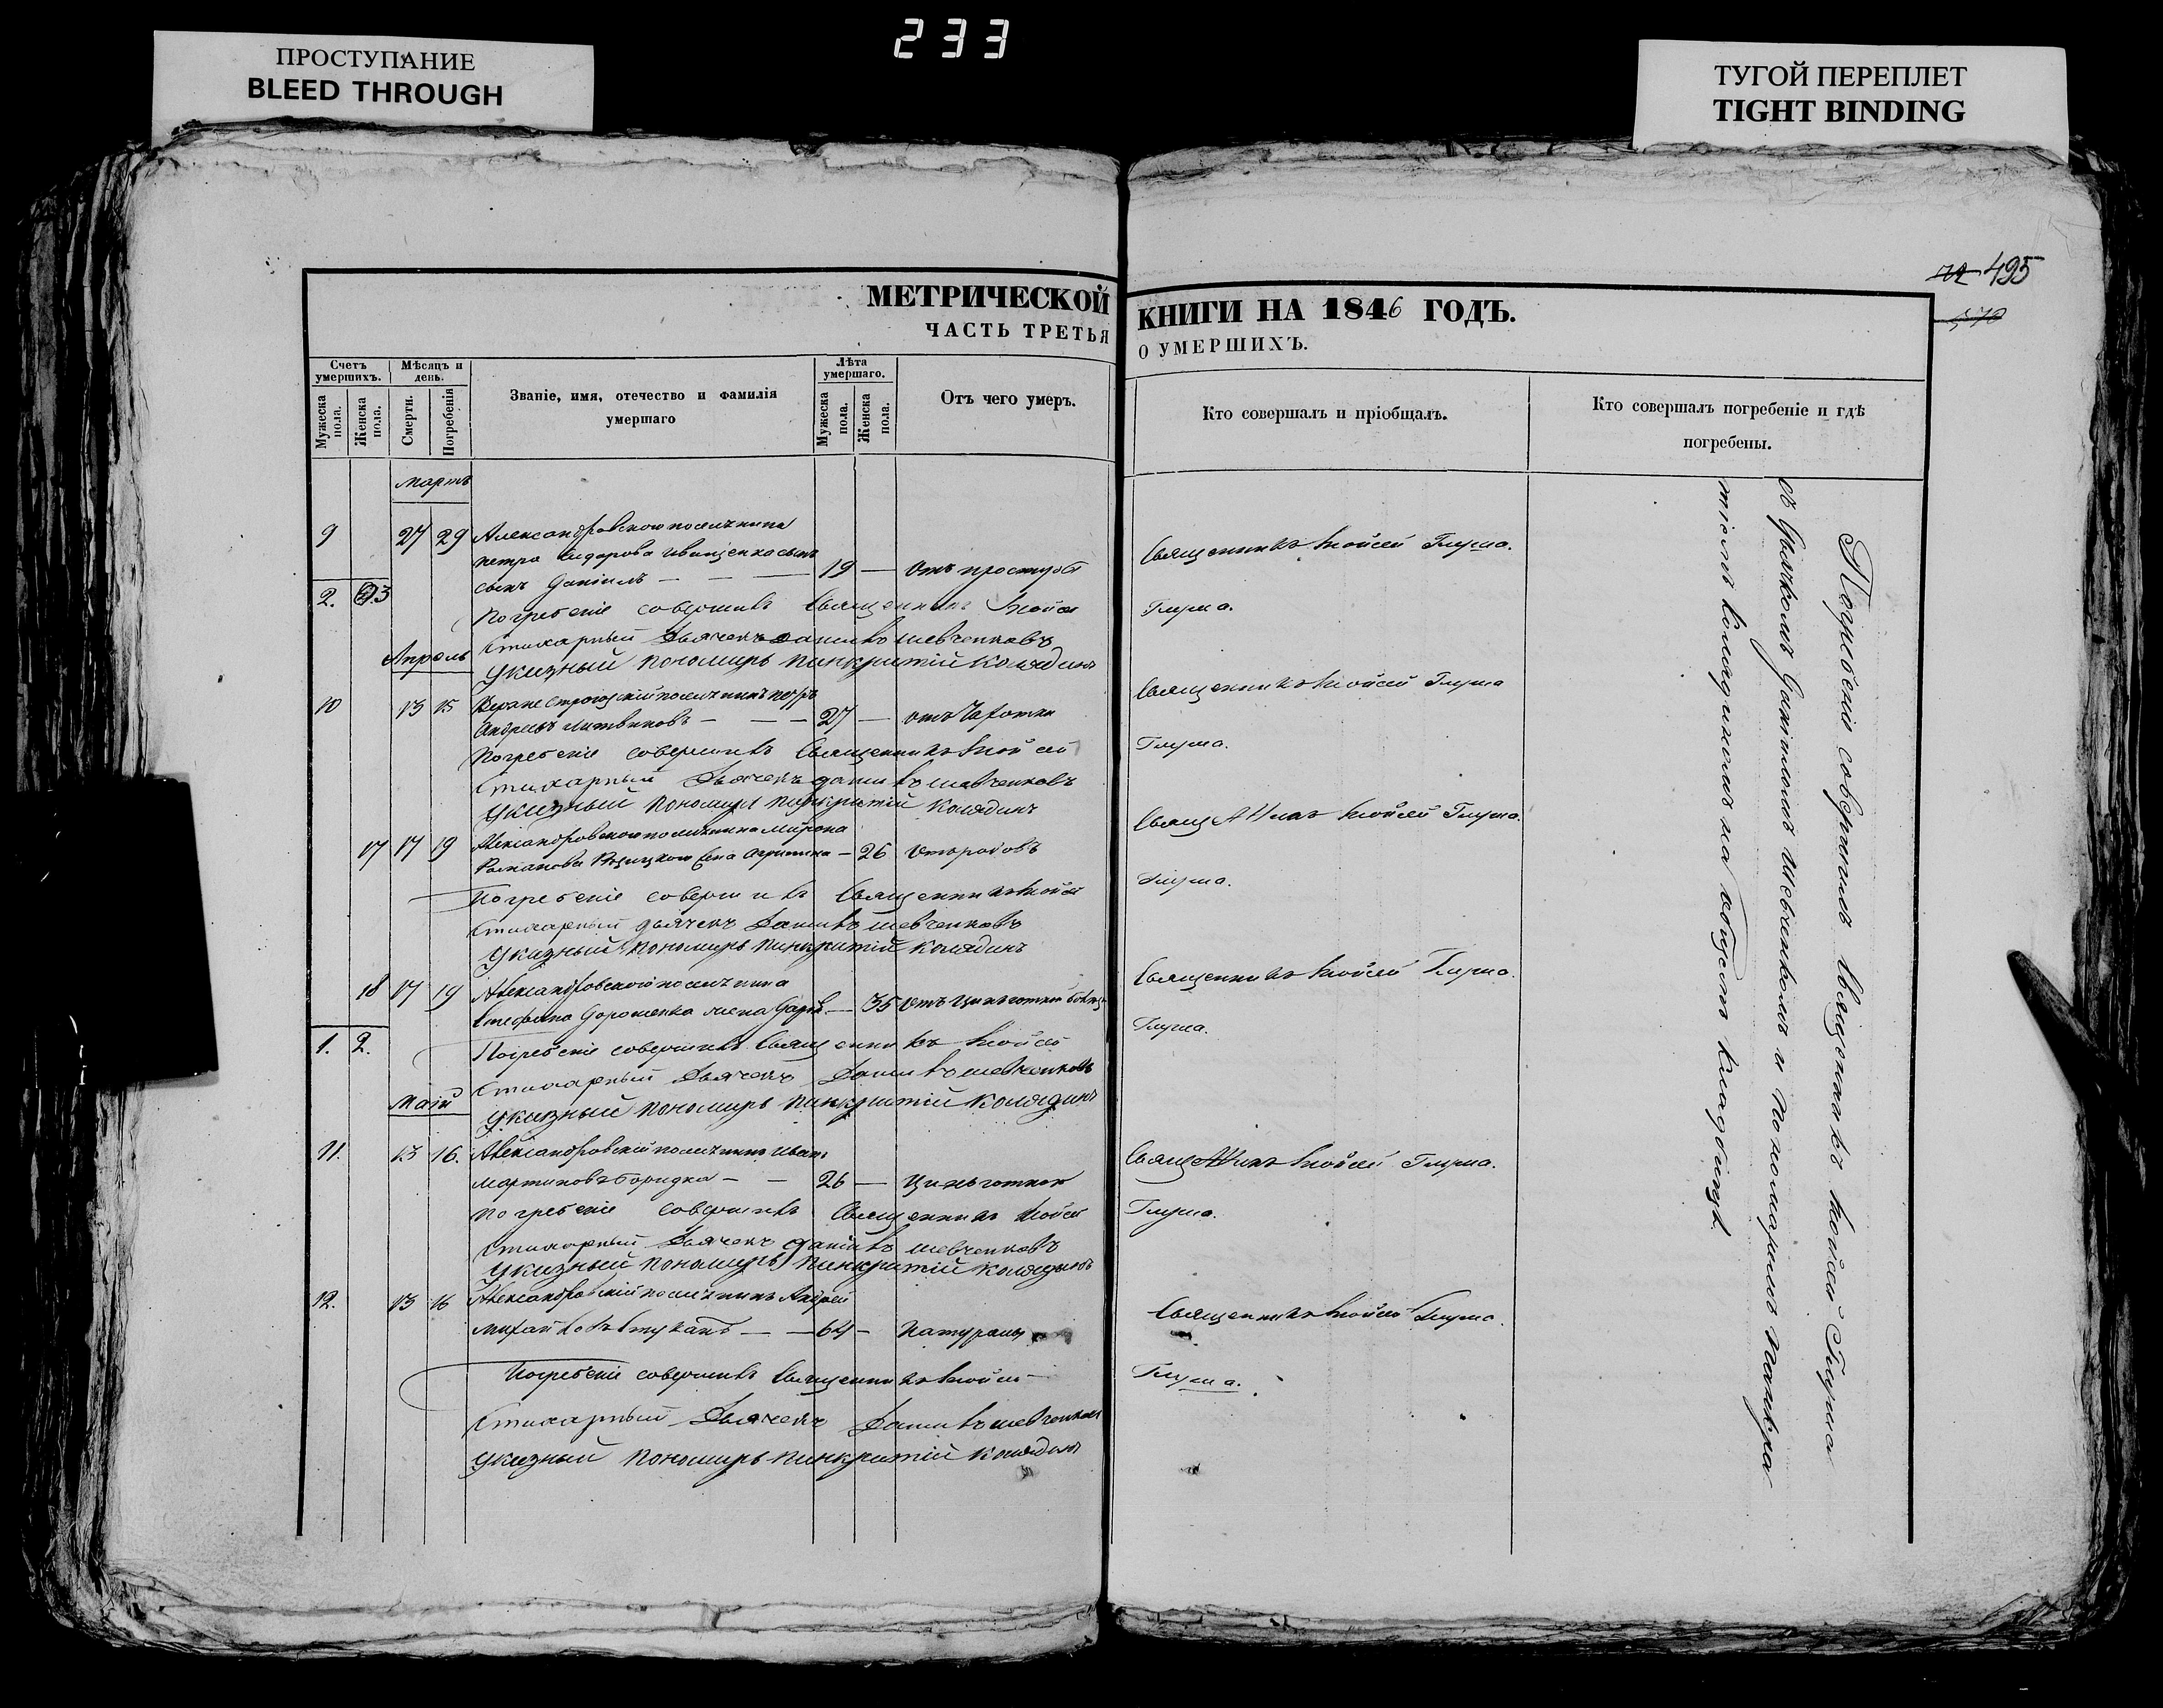 233
ПРОСТУПАНИЕ
BLEED THROUGH
ТУГОЙ ПЕРЕПЛЕТ
TIGHT BINDING
495
570
МЕТРИЧЕСКОЙ КНИГИ НА 1846 ГОДЪ.
ЧАСТЬ ТРЕТЬЯ О УМЕРШИХЪ.
Счетъ умершихъ.
Мужеска пола.
Женска пола.
Мѣсяцъ и день.
Смерти.
Погребенія
Званіе, имя, отечество и фамилія умершаго
Лѣта умершаго.
Мужеска пола.
Женска пола.
Отъ чего умеръ.
Кто совершалъ и пріобщалъ.
Кто совершалъ погребеніе и гдѣ погребены.
Мартъ
9 27 29 Александровского поселянина
Петра Сидорова Иващенко сынъ
сынъ Даніилъ — 19 — Отъ простуды
Священникъ Мойсей Глума.
2. 3
Погребеніе совершивъ Священникъ Мойсей Глума.
Стихарный Дьячекъ Даніилъ Шевченковъ
Апрель
Указный Пономарь Панкратій Колядинъ
10 13 15 поселянинъ Петръ
Андреевъ Литвиновъ — 27 — отъ Чахотки
Священникъ Мойсей Глума
Погребеніе совершивъ Священникъ Мойсей Глума.
Стихарный Дьячекъ Даніилъ Шевченковъ
Указный Пономарь Панкратій Колядинъ
17 17 19 Александровского поселянина Мирона
Романова жена Агрипина — 26 Отъ родовъ
Мойсей Глума.
Погребеніе совершивъ Священникъ Мойсей Глума.
Стихарный Дьячекъ Даніилъ Шевченковъ
Указный Пономарь Панкратій Колядинъ
18 17 19 Александровского поселянина
Стефана Дорошенка жена Дарья — 35 Отъ Цинготной
Священникъ Мойсей Глума.
1. 2.
Погребеніе совершивъ Священникъ Мойсей Глума.
Стихарный Дьячекъ Даніилъ Шевченковъ
Маій
Указный Пономарь Панкратій Колядинъ
11. 13 16. Александровскій поселянинъ Иванъ
Мартиновъ — 26 — Цинготной
Мойсей Глума.
Погребеніе совершивъ Священникъ Мойсей Глума.
Стихарный Дьячекъ Даніилъ Шевченковъ
Указный Пономарь Панкратій Колядинъ
12. 13 16 Александровскій поселянинъ Андрей
Михайловъ — 64 — Натурально
Священникъ Мойсей Глума.
Погребеніе совершивъ Священникъ Мойсей Глума.
Стихарный Дьячекъ Даніилъ Шевченковъ
Указный Пономарь Панкратій Колядинъ
Погребеніе совершилъ Священникъ Мойсей Глума
съ Дьячкомъ Даніиломъ Шевченкомъ и Пономаремъ Панкра
тіемъ Колядиномъ на общемъ кладбищѣ.